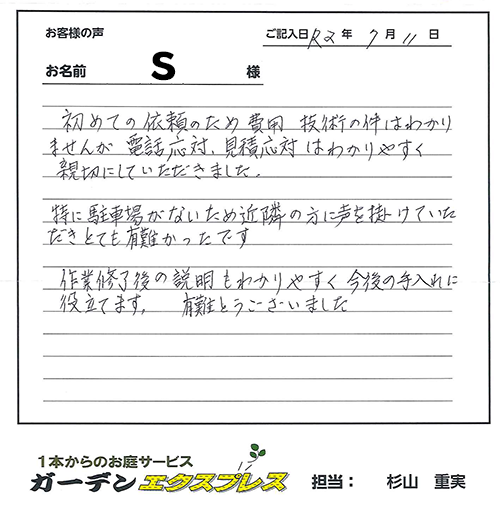 お客様の声
ご記入日 R2年 7月 11日
お名前 S 様
初めての依頼のため費用 技術の件はわかり
ませんが 電話応対、見積応対 はわかりやすく
親切にしていただきました。
特に駐車場がないため近隣の方に声を掛けていた
だきとても有難かったです
作業修了後の説明もわかりやすく今後の手入れに
役立てます。 有難とうございました
1本からのお庭サービス
ガーデンエクスプレス 担当： 杉山 重実